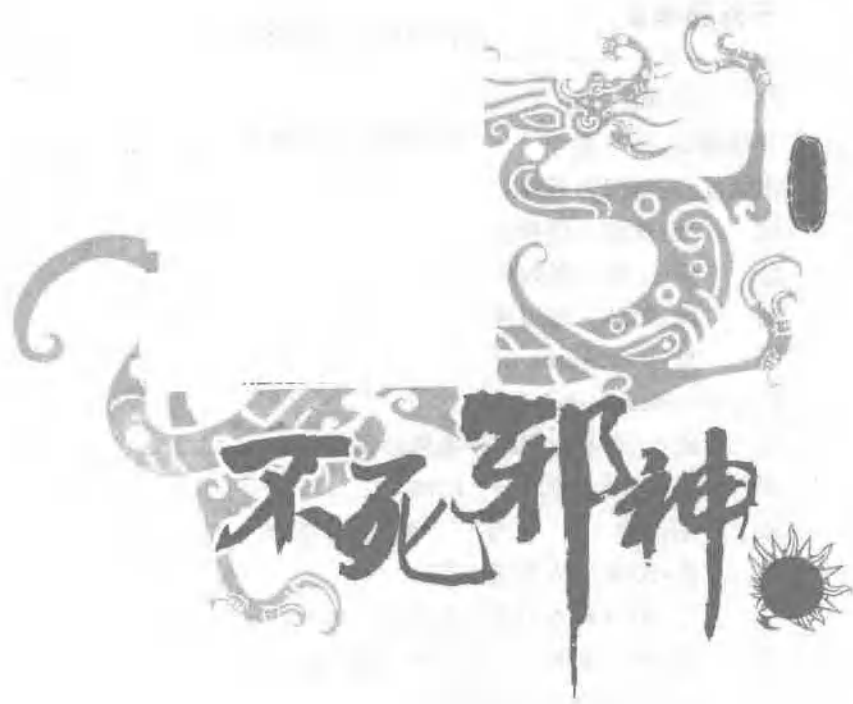 不死邪神